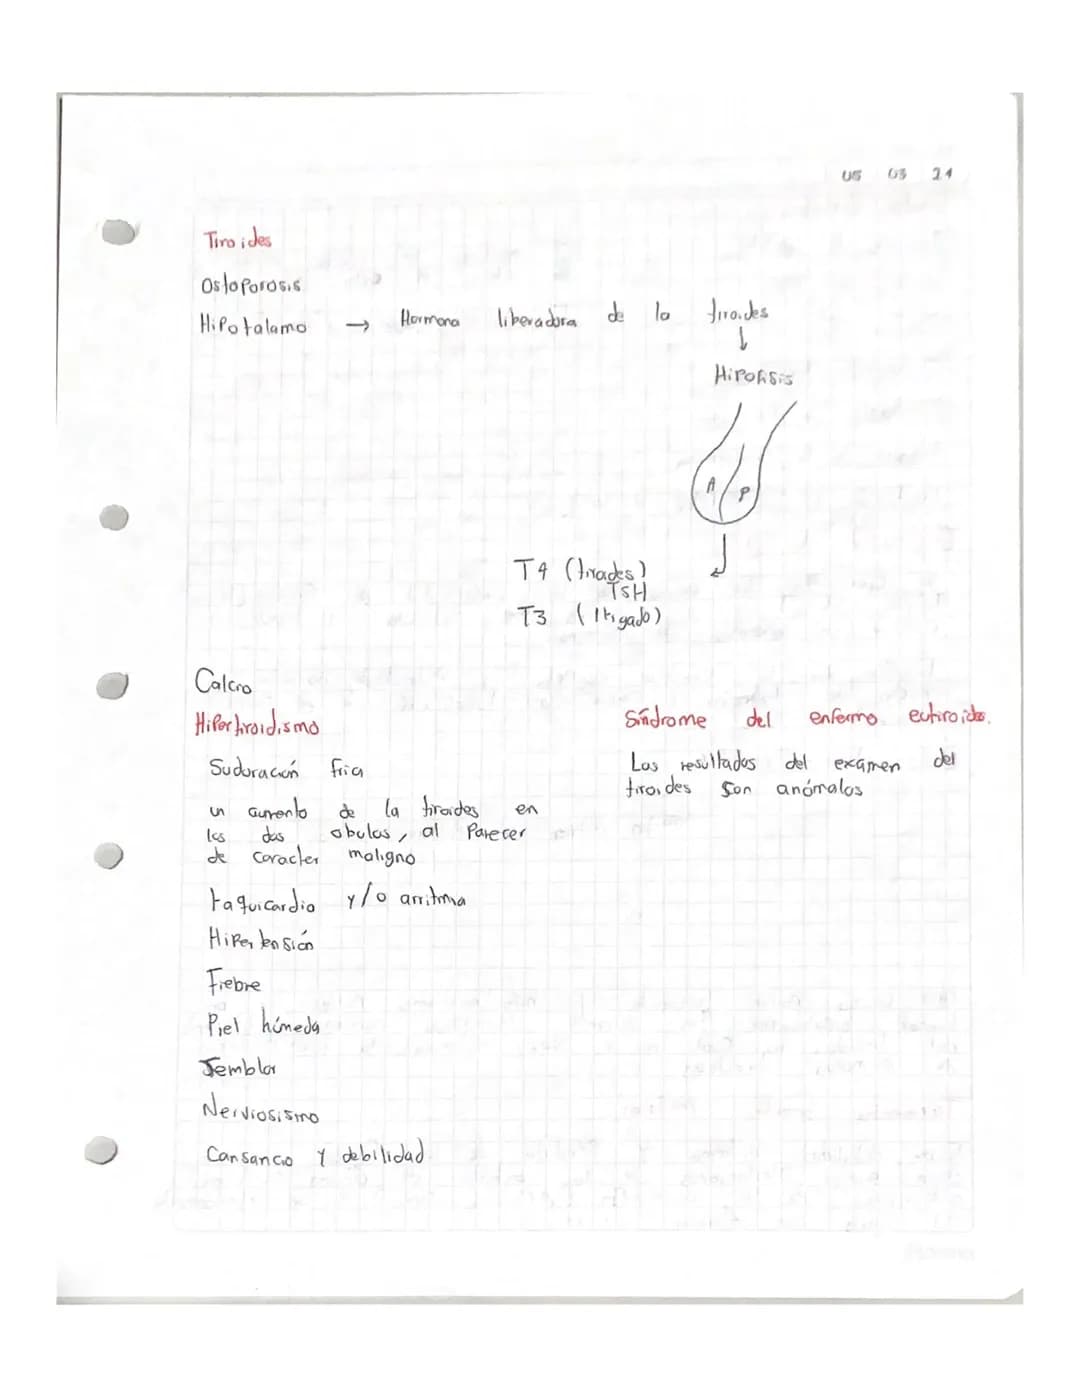 05 03 24
Tiroides
Ostoporosis
Hipotalamo → Hormona liberadora de la tiroides
↓
Hipofisis
A P
T4 (tirades)
TSH
T3 (Higado)
Calcio
Hipertiroidismo
Sudoración fria
un aumento de la tiroides en
los dos obulos, al Parecer
de caracter maligno
taquicardia y/o arritmia
Hipertensión
Fiebre
Piel húmeda
Temblor
Nerviosismo
Cansancio y debilidad
Síndrome del enfermo eutiroideo.
Los resultados del exámen del
tiroides son anómalos